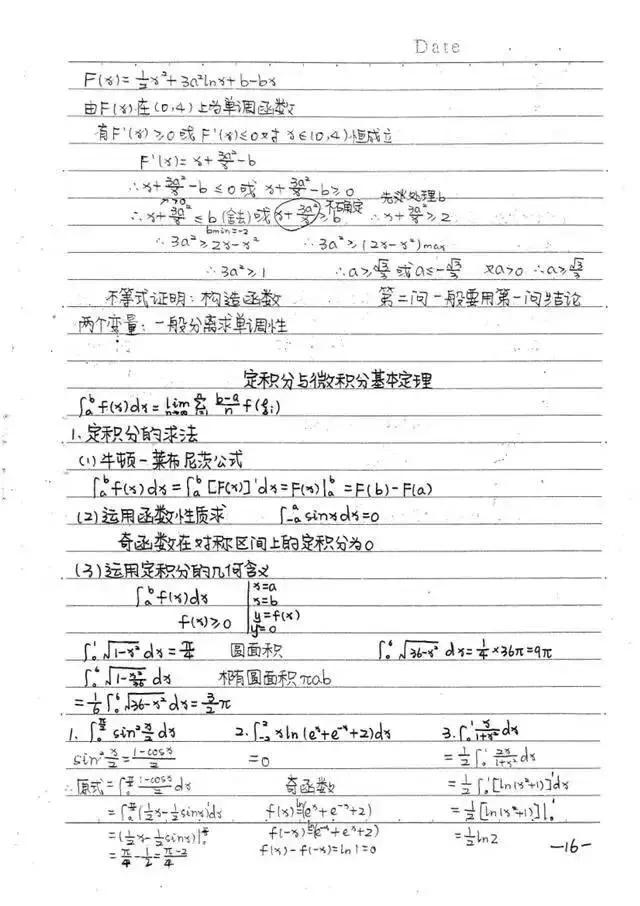 Date
F(x)=½x²+3a²lnx+b-bx
由F(x)在(0,4)上为单调函数
有F'(x)≥0或F'(x)≤0对x∈(0,4)恒成立
F'(x)=x+3a²/x-b
∴x+3a²/x-b≤0或x+3a²/x-b≥0 先张处理b
x>0 不确定
∴x+3a²/x≤b(舍去)或x+3a²/x≥b ∴x+3a²/x≥2
bmin=-2
∴3a²≥2x-x² ∴3a²≥(2x-x²)max
∴3a²≥1 ∴a≥√3/3或a≤-√3/3 又a>0 ∴a≥√3/3
不等式证明:构造函数 第二问一般要用第一问结论
两个变量:一般分离求单调性
定积分与微积分基本定理
∫ₐᵇf(x)dx=lim n→∞ Σ (b-a)/n f(ξi)
1.定积分的求法
(1)牛顿-莱布尼茨公式
∫ₐᵇf(x)dx=∫ₐᵇ[F(x)]'dx=F(x)|ₐᵇ=F(b)-F(a)
(2)运用函数性质求 ∫₋ₐᵃsinxdx=0
奇函数在对称区间上的定积分为0
(3)运用定积分的几何含义
∫ₐᵇf(x)dx x=a
x=b
f(x)≥0 y=f(x)
y=0
∫₀¹√(1-x²)dx=π/4 圆面积 ∫₀⁶√(36-x²)dx=¼×36π=9π
∫₀⁶√(1-x²/36)dx 椭圆面积πab
=1/6∫₀⁶√(36-x²)dx=3/2π
1.∫₀^(π/2)sin²x/2dx 2.∫₋₂²xln(eˣ+e⁻ˣ+2)dx 3.∫₀¹x/(1+x²)dx
sin²x/2=(1-cosx)/2 =0 =½∫₀¹2x/(1+x²)dx
∴原式=∫₀^(π/2)(1-cosx)/2dx 奇函数 =½∫₀¹[ln(x²+1)]'dx
=∫₀^(π/2)(½x-½sinx)'dx f(x)=ln(eˣ+e⁻ˣ+2) =½[ln(x²+1)]|₀¹
=(½x-½sinx)|₀^(π/2) f(-x)=ln(e⁻ˣ+eˣ+2) =½ln2
=π/4-1/2=(π-2)/4 f(x)-f(-x)=ln1=0 -16-